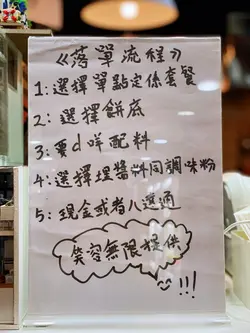 《落單流程》
1:選擇單點定係套餐
2:選擇餅底
3:要d咩配料
4:選擇埋醬料同調味粉
5:現金或者八達通
笑容無限提供
!!!